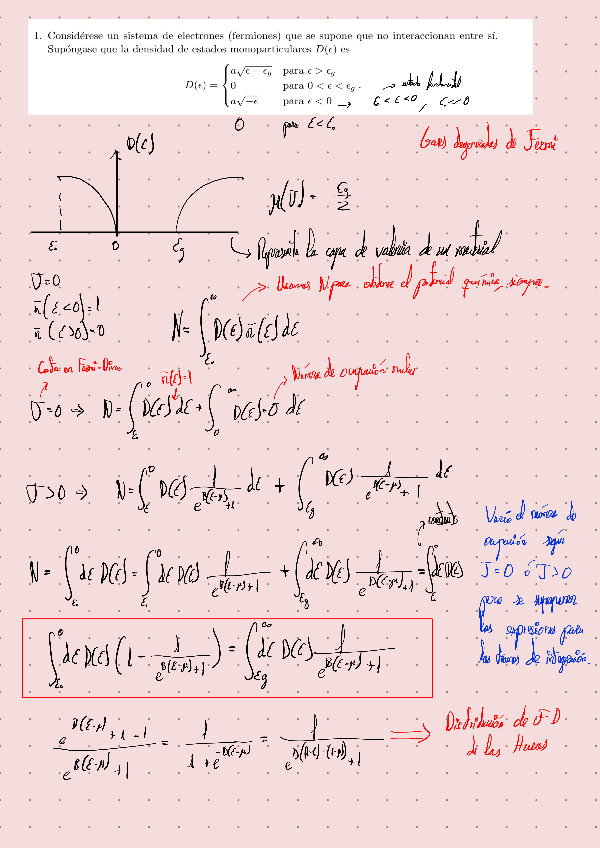 1. Considérese un sistema de electrones (fermiones) que se supone que no interaccionan entre sí.
Supóngase que la densidad de estados monoparticulares D(ϵ) es
D(ϵ) = { a√(ϵ − ϵg) para ϵ > ϵg
0 para 0 < ϵ < ϵg .
a√−ϵ para ϵ < 0
→ estado fundamental
→ ϵ₀ < ϵ < 0 , ϵ₀ < 0
0 para ϵ < ϵ₀
Gases degenerados de Fermi
D(ϵ)
μ(T) = ϵg/2
ϵ₀ 0 ϵg
→ Representa la capa de valencia de un material
T=0
n̄(ϵ<0)=1
n̄(ϵ>0)=0
→ Usamos N para obtener el potencial químico, siempre.
N = ∫_{ϵ₀}^{∞} D(ϵ) n̄(ϵ) dϵ
en Fermi-Dirac
n̄(ϵ)=1
→ Número de ocupación nulo
T=0 ⇒ N = ∫_{ϵ₀}^{0} D(ϵ) dϵ + ∫_{0}^{∞} D(ϵ)·0 dϵ
T>0 ⇒ N = ∫_{ϵ₀}^{0} D(ϵ) 1/(e^{β(ϵ-μ)}+1) dϵ + ∫_{ϵg}^{∞} D(ϵ) 1/(e^{β(ϵ-μ)}+1) dϵ
constante
N = ∫_{ϵ₀}^{0} dϵ D(ϵ) = ∫_{ϵ₀}^{0} dϵ D(ϵ) 1/(e^{β(ϵ-μ)}+1) + ∫_{ϵg}^{∞} dϵ D(ϵ) 1/(e^{β(ϵ-μ)}+1) = ∫_{ϵ₀}^{0} dϵ D(ϵ)
Varía el número de
ocupación según
T=0 ó T>0
pero se
las expresiones para
los de integración.
∫_{ϵ₀}^{0} dϵ D(ϵ) (1 - 1/(e^{β(ϵ-μ)}+1)) = ∫_{ϵg}^{∞} dϵ D(ϵ) 1/(e^{β(ϵ-μ)}+1)
(e^{β(ϵ-μ)}+1-1)/(e^{β(ϵ-μ)}+1) = 1/(1+e^{-β(ϵ-μ)}) =
⇒ Distribución de F-D
de los Huecos